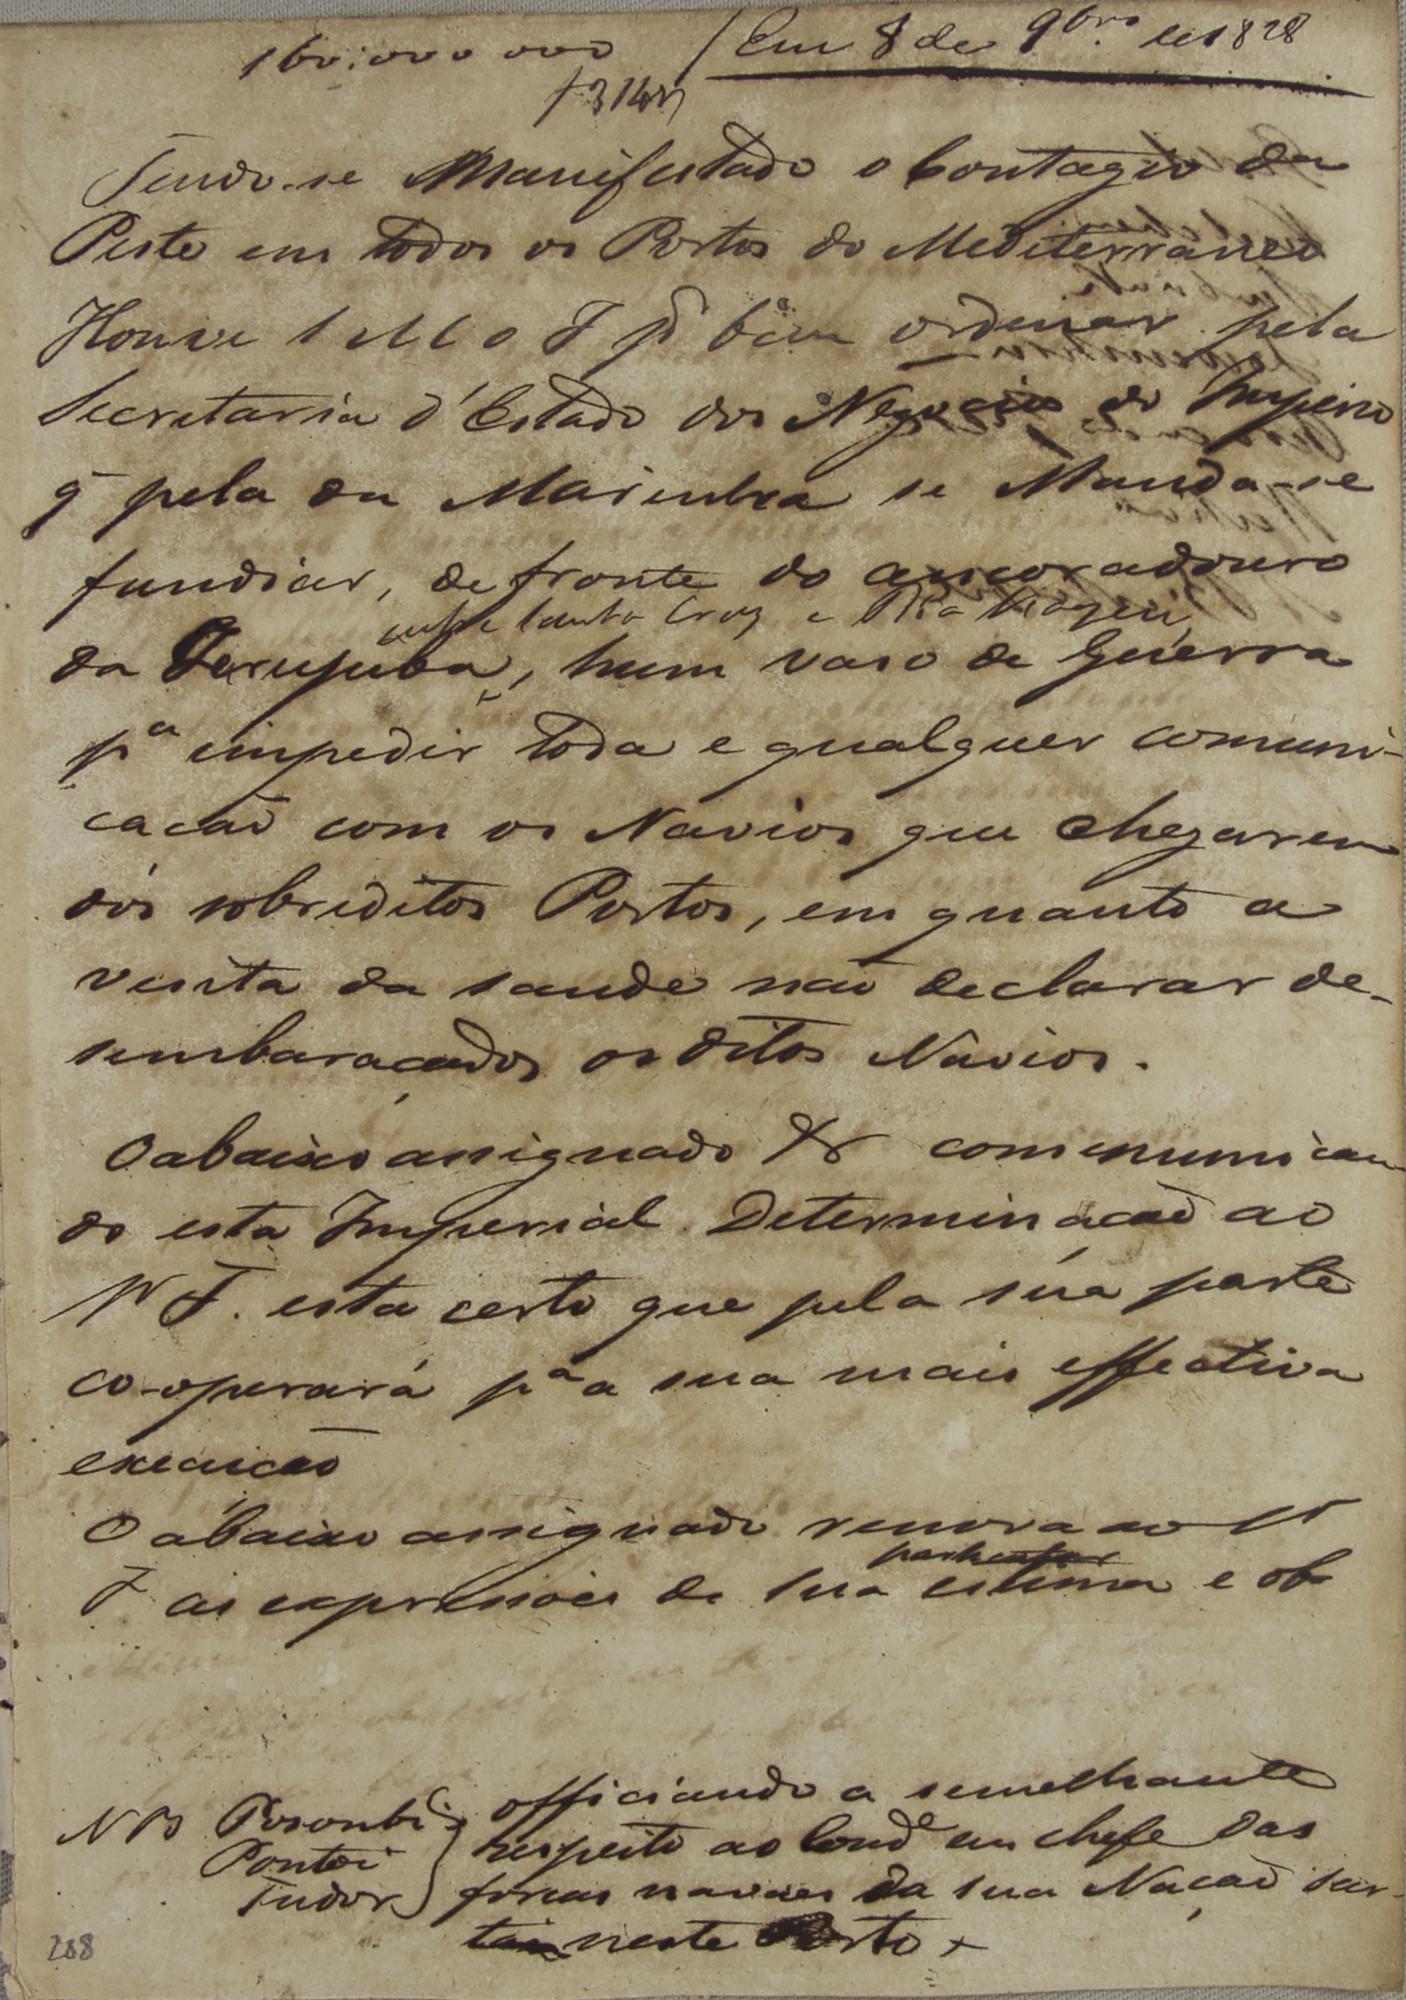 160:000 000 / Em 8 de 9bro de 1828
Tendo-se Manifestado o Contagio da
Peste em todos os Portos do Mediterraneo
Houve S M O I por bem ordenar pela
Secretaria d'Estado dos Negocios do Imperio
q pela da Marinha se Manda-se
fundiar, defronte do ancoradouro
entre Santa Cruz e Boa Viagem
da Jerujuba, hum vaso de Guerra
pa impedir toda e qualquer comuni-
cação com os Navios que chegarem
dós sobreditos Portos, em quanto a
visita da saude não declarar de-
sembaraçados os ditos Navios.
O abaixo assignado & communican
do esta Imperial Determinação ao
Sr F. está certo que pela súa parte
co-operará pa a sua mais effectiva
execução
O abaixo assignado renova ao Sr
F as expressões de sua particular estima e ob
NB Ponsonbi officiando a semelhante
Pontoi respeito ao Comde em chefe das
Tudor forças navaes da sua Nação
neste Porto
268